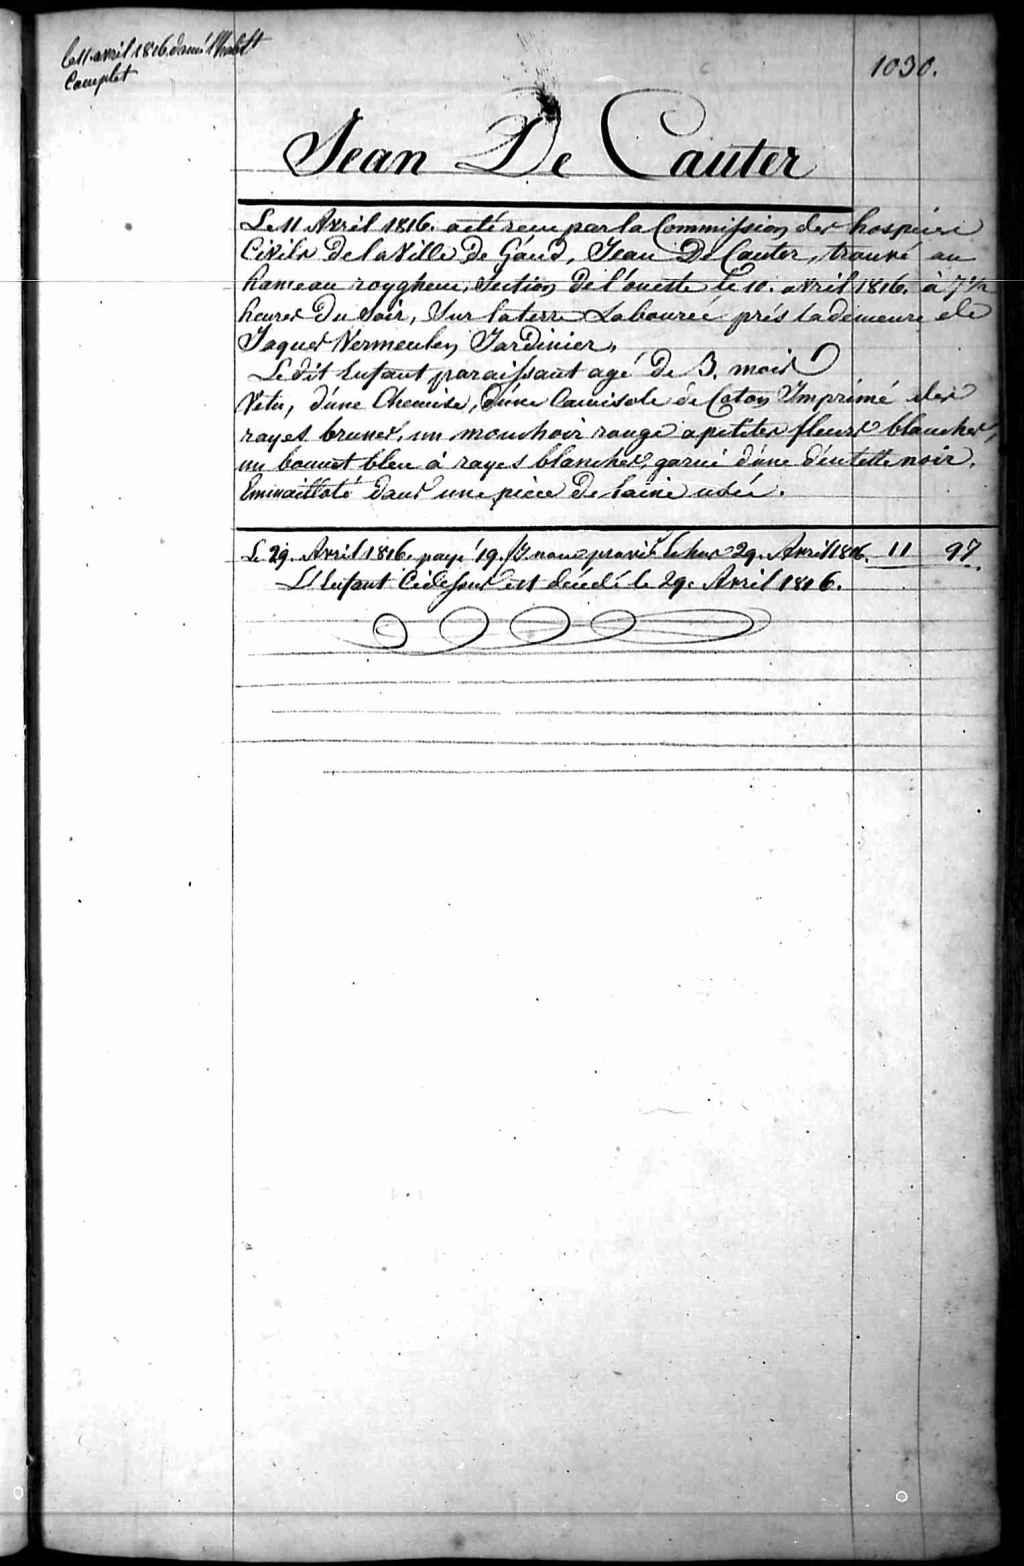 Le 11 avril 1816. donné l'habill.t
Complet
1030.
Jean De Cauter
Le 11 Avril 1816. a été recu par la Commission des hospices
Civils de la Ville de Gand, Jean De Cauter, trouvé au
hameau royghem, Section de l'ouest le 10. avril 1816. à 7 1/2
heures du Soir, Sur la terre Labourée prés la demeure de
Jaques Vermeulen Jardinier.
Le dit Enfant paraissant agé de 3. mois
Vetu, d'une Chemise, d'une Camisole de Coton Imprimé des
rayes brunes, un mouchoir rouge a petites fleurs blanches,
un bonnet bleu à rayes blanches, garni d'une déntelle noir.
Emmailloté dans une pièce de laine usée.
Le 29. Avril 1816. payé 19. 29. Avril 1816. 11 97.
L'Enfant Cidessus est décédé le 29. Avril 1816.